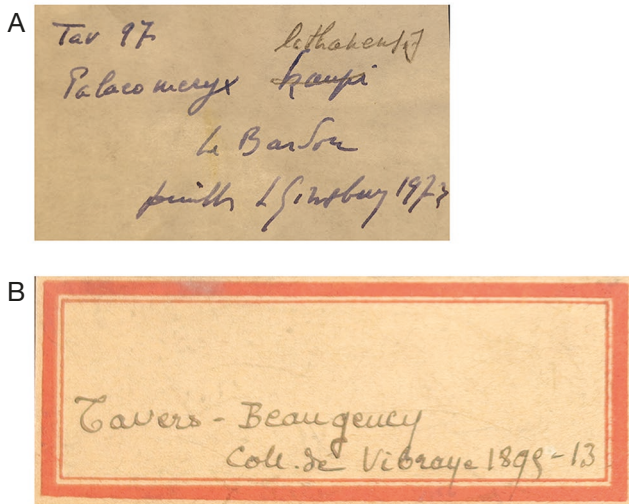 A
Tav 97
Palaeomeryx kaupi
Le Bardon
fouilles L Ginsburg 1973
B
Tavers - Beaugency
Coll. de Vibraye 1899-13